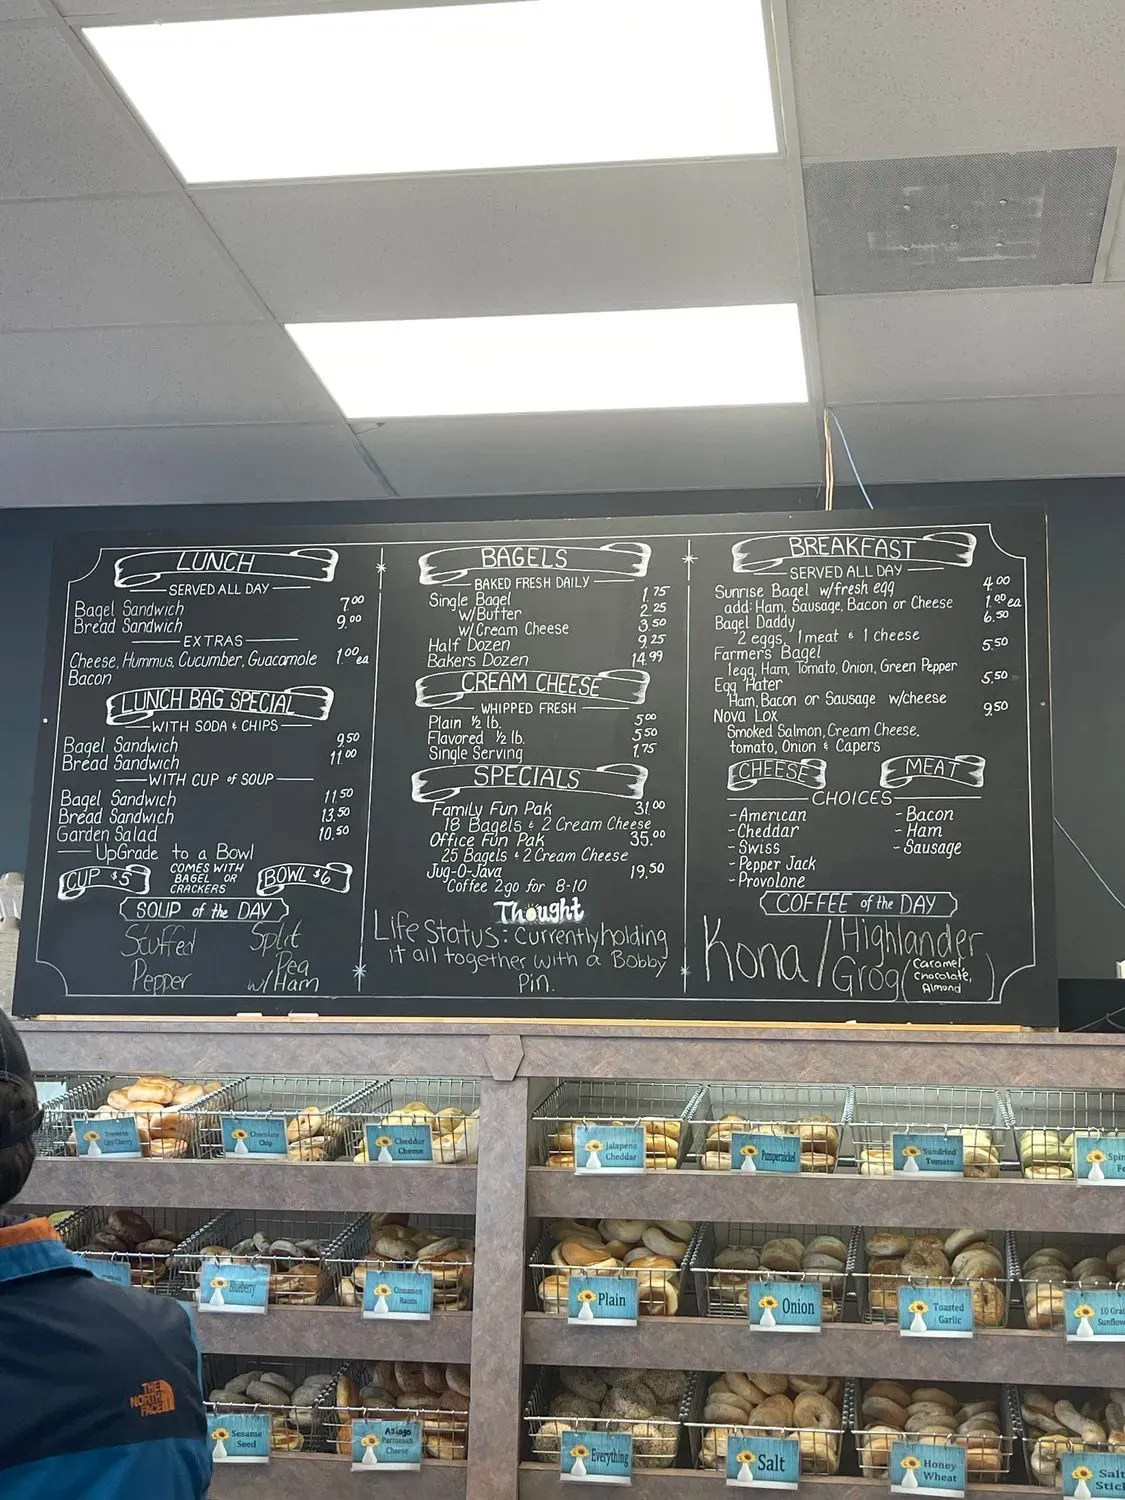 LUNCH
SERVED ALL DAY
Bagel Sandwich 7.00
Bread Sandwich 9.00
EXTRAS
Cheese, Hummus, Cucumber, Guacamole 1.00 ea
Bacon
LUNCH BAG SPECIAL
WITH SODA & CHIPS
Bagel Sandwich 9.50
Bread Sandwich 11.00
WITH CUP of SOUP
Bagel Sandwich 11.50
Bread Sandwich 13.50
Garden Salad 10.50
UpGrade to a Bowl
CUP $5
COMES WITH
BAGEL OR
CRACKERS
BOWL $6
SOUP of the DAY
Stuffed
Pepper
Split
Pea
w/Ham
BAGELS
BAKED FRESH DAILY
Single Bagel 1.75
w/Butter 2.25
w/Cream Cheese 3.50
Half Dozen 9.25
Bakers Dozen 14.99
CREAM CHEESE
WHIPPED FRESH
Plain ½ lb. 5.00
Flavored ½ lb. 5.50
Single Serving 1.75
SPECIALS
Family Fun Pak 31.00
18 Bagels & 2 Cream Cheese
Office Fun Pak 35.00
25 Bagels & 2 Cream Cheese
Jug-O-Java 19.50
Coffee 2go for 8-10
Thought
Life Status: Currently holding
it all together with a Bobby
Pin.
BREAKFAST
SERVED ALL DAY
Sunrise Bagel w/fresh egg 4.00
add: Ham, Sausage, Bacon or Cheese 1.00 ea
Bagel Daddy 6.50
2 eggs, 1 meat & 1 cheese
Farmer's Bagel 5.50
1 egg, Ham, Tomato, Onion, Green Pepper
Egg Hater 5.50
Ham, Bacon or Sausage w/cheese
Nova Lox 9.50
Smoked Salmon, Cream Cheese,
tomato, Onion & Capers
CHEESE
MEAT
CHOICES
-American
-Cheddar
-Swiss
-Pepper Jack
-Provolone
-Bacon
-Ham
-Sausage
COFFEE of the DAY
Kona/
Highlander
Grog
(Caramel,
Chocolate,
Almond)
Cherry
Chocolate
Chip
Cheddar
Cheese
Jalapeno
Cheddar
Pumpernickel
Sundried
Tomato
Blueberry
Cinnamon
Raisin
Plain
Onion
Toasted
Garlic
10 Grai
Sunflow
THE
NORTH
FACE
Sesame
Seed
Asiago
Parmesan
Cheese
Everything
Salt
Honey
Wheat
Salt
Stic